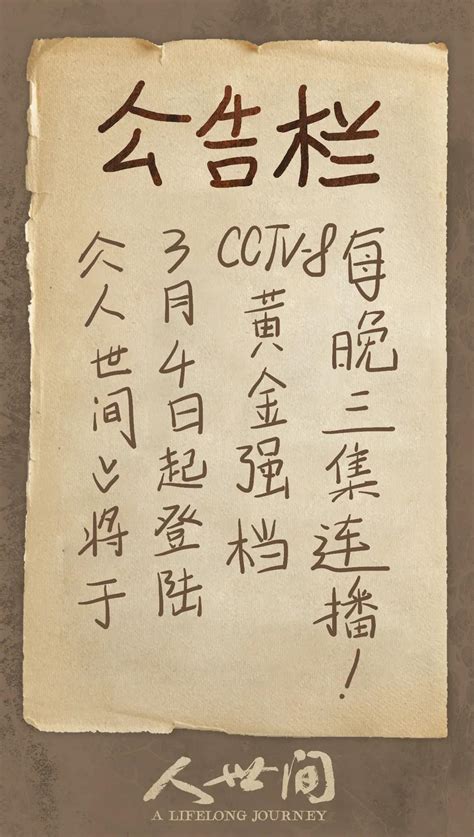 公告栏
《人世间》将于
3月4日起登陆
CCTV-8黄金强档
每晚三集连播！
人世间
A LIFELONG JOURNEY